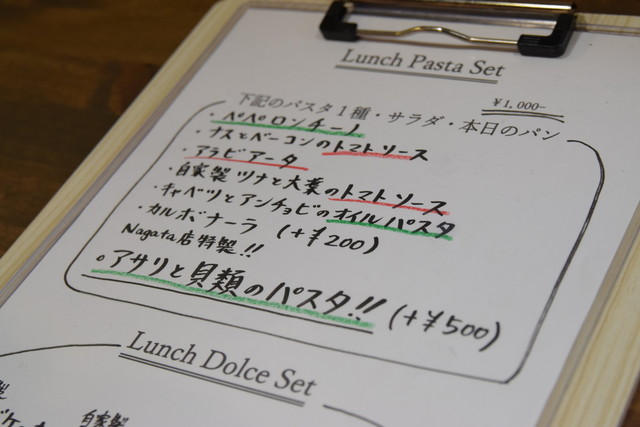 Lunch Pasta Set
¥1,000-
下記のパスタ1種・サラダ・本日のパン
・ペペロンチーノ
・ナスとベーコンのトマトソース
・アラビアータ
・自家製 ツナと大葉のトマトソース
・キャベツとアンチョビのオイルパスタ
・カルボナーラ (+¥200)
Nagata店特製!!
。アサリと貝類のパスタ!! (+¥500)
Lunch Dolce Set
自家製